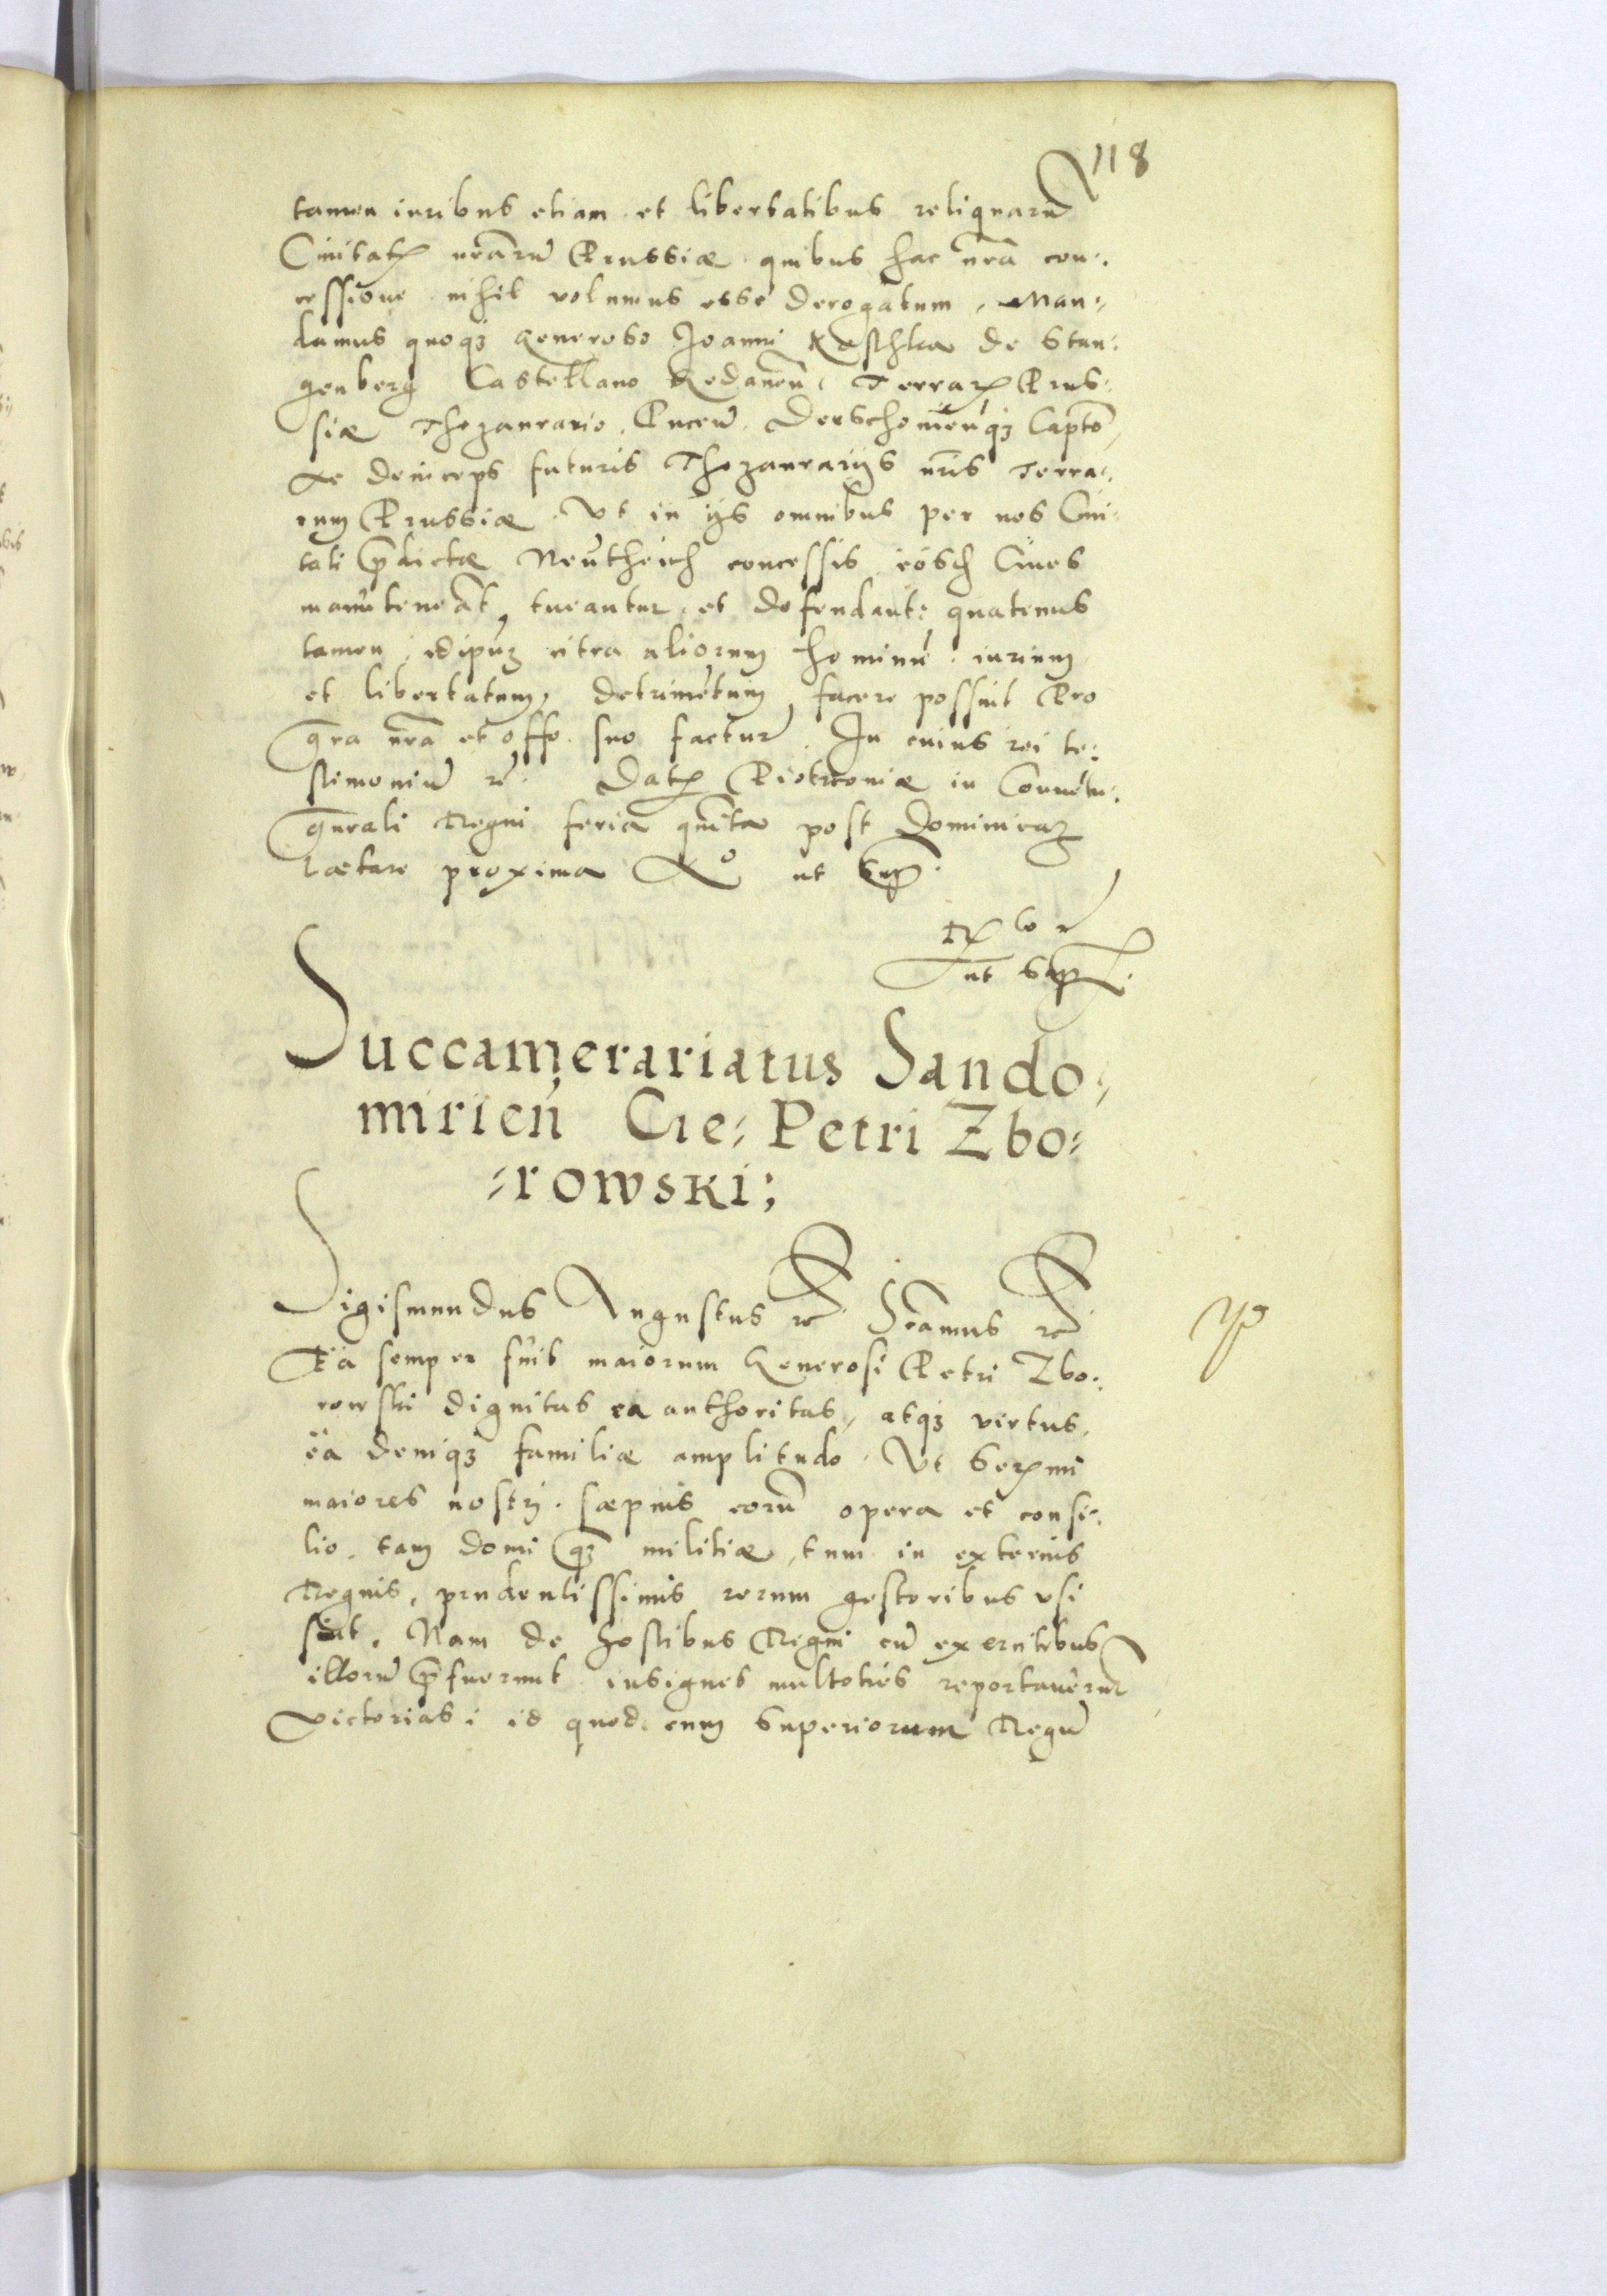 118
tamen iuribus etiam et libertatibus reliquarũ
Ciuitatꝝ nr̃arũ Prussiæ quibus hac nr̃a con:
cessione nihil volumus esse derogatum, Man:
damus quoqꝫ Generoso Joanni Koschka de Stan:
genberg Castellano Gedanen̄ Terrarꝝ Prus:
siæ Thezaurario, Pucen̄ Derschouien̄qꝫ Capt̃o,
Ac deinceps futuris Thezaurarijs nr̃is Terra:
rum Prussiæ. Vt in ijs omnibus per nos Ciui:
tati p̃dictæ Neũtheich concessis eosd Ciues
manuteneãt, tueantur et defendant: quatenus
tamen idipsuꝫ citra aliorum hominũ iurium
et libertatum, detrimẽtum, facere possint Pro
gr̃a nr̃a et offo suo facturi. In cuius rei te:
stimoniũ rc̃. Datꝝ Piotrcouiæ in Conuẽtu:
gñrali Regni feria quĩta post Dominicaꝫ
Lætare proxima Aº ut sup̃.
Rꝝ Co r
ut sup̃.
Succamerariatus Sando:
mirien̄ Cie: Petri Zbo:
:rowski;
Sigismundus Augustus rc̃ Scãmus rc̃
Ea semper fuit maiorum Generosi Petri Zbo:
rowski dignitas ea authoritas, atqꝫ virtus,
ea deniqꝫ familiæ amplitudo. Vt Serꝝmi
maiores nostri. sæpius eorũ opera et consi:
lio, tam domi q̃ꝫ militiæ, tum in externis
Regnis, prudentissimis rerum gestoribus vsi
sint. Nam de hostibus Regni cũ exercitibus
illorũ p̃fuerunt insignes multoties reportauerũt
Victorias: id quod cum Superiorum Regũ